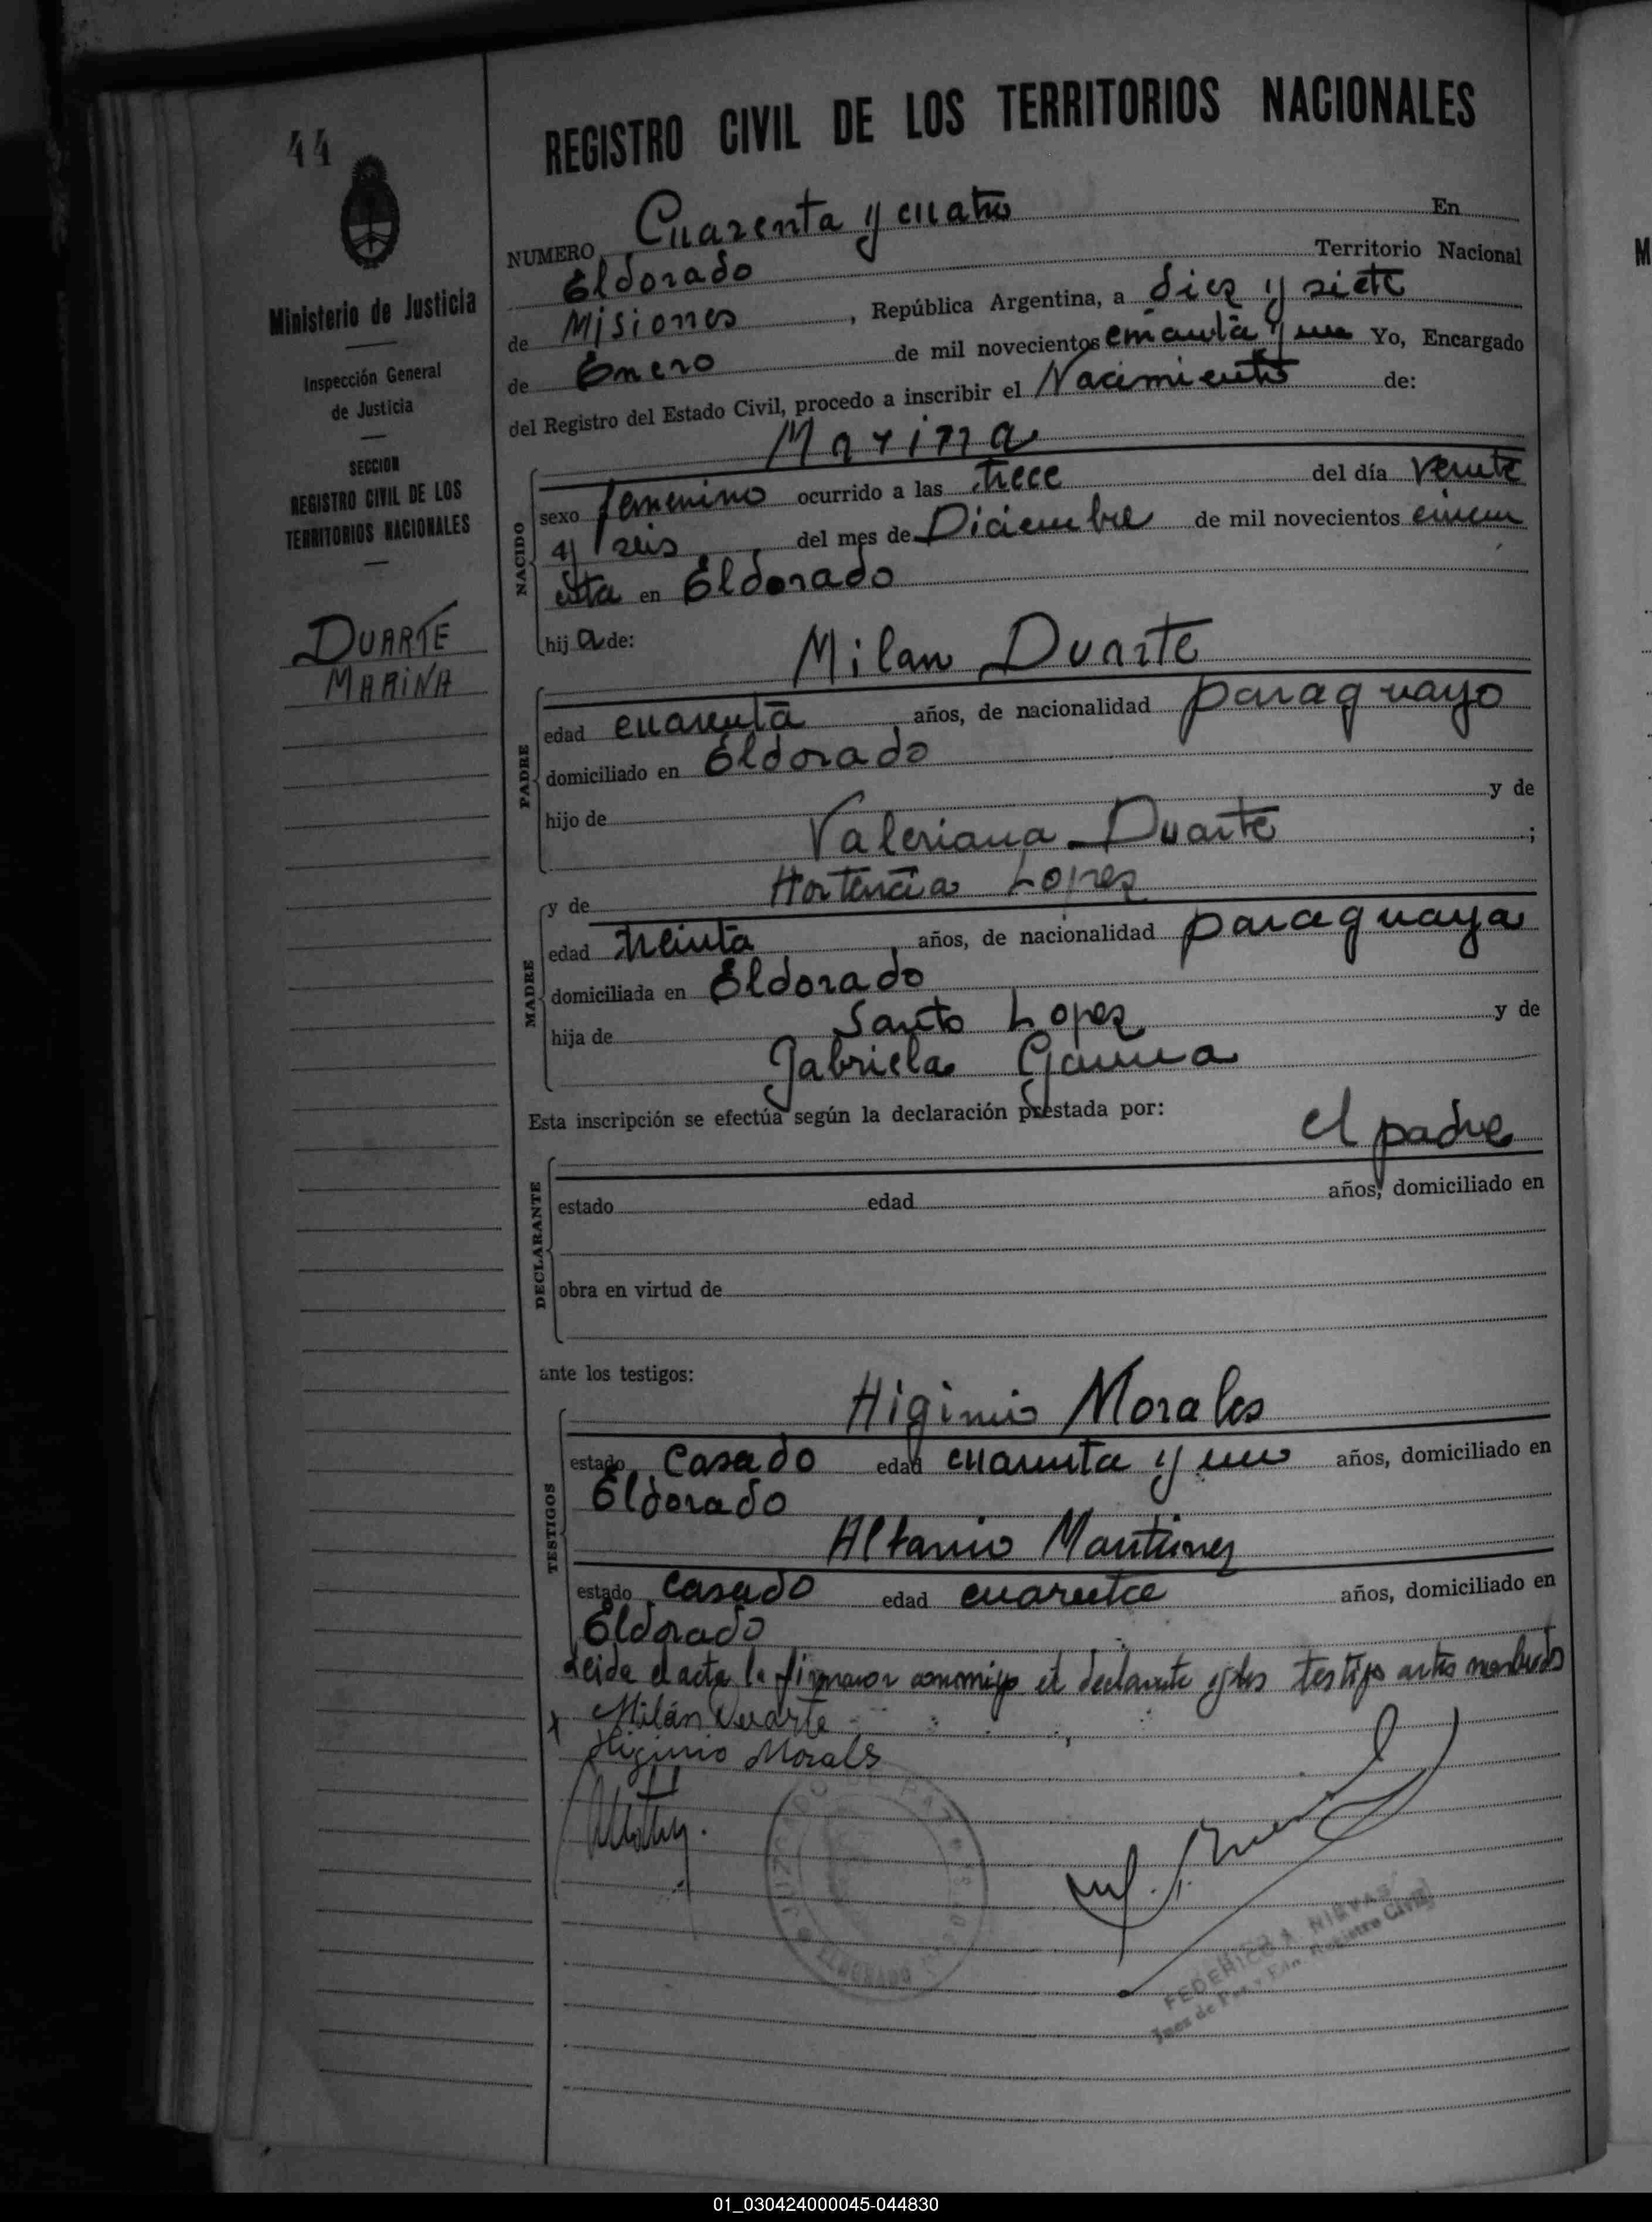 44
Ministerio de Justicia
Inspección General
de Justicia
SECCION
REGISTRO CIVIL DE LOS
TERRITORIOS NACIONALES
DUARTE
MARINA
REGISTRO CIVIL DE LOS TERRITORIOS NACIONALES
NUMERO Cuarenta y cuatro En
Eldorado Territorio Nacional
de Misiones, República Argentina, a diez y siete
de Enero de mil novecientos y un Yo, Encargado
del Registro del Estado Civil, procedo a inscribir el Nacimiento de:
Marina
NACIDO
sexo femenino ocurrido a las trece del día veinte
y seis del mes de Diciembre de mil novecientos cincu
enta en Eldorado
hij a de:
Milan Duarte
PADRE
edad cuarenta años, de nacionalidad paraguayo
domiciliado en Eldorado
hijo de y de
Valeriana Duarte ;
y de Hortencia Lopez
MADRE
edad treinta años, de nacionalidad paraguaya
domiciliada en Eldorado
hija de Santo Lopez y de
Gabriela
Esta inscripción se efectúa según la declaración prestada por:
el padre
DECLARANTE
estado edad años, domiciliado en
obra en virtud de
ante los testigos:
Higinio Morales
TESTIGOS
estado casado edad cuarenta y un años, domiciliado en
Eldorado
Altanio Martinez
estado casado edad cuarenta años, domiciliado en
Eldorado
leida el acta la firmaron conmigo el declarante y los testigos antes nombrados
x Milán Duarte
Higinio Morals
ELDORADO
FEDERICO A. NIEVAS
Juez de Paz y Enc. Registro Civil
01_030424000045-044830